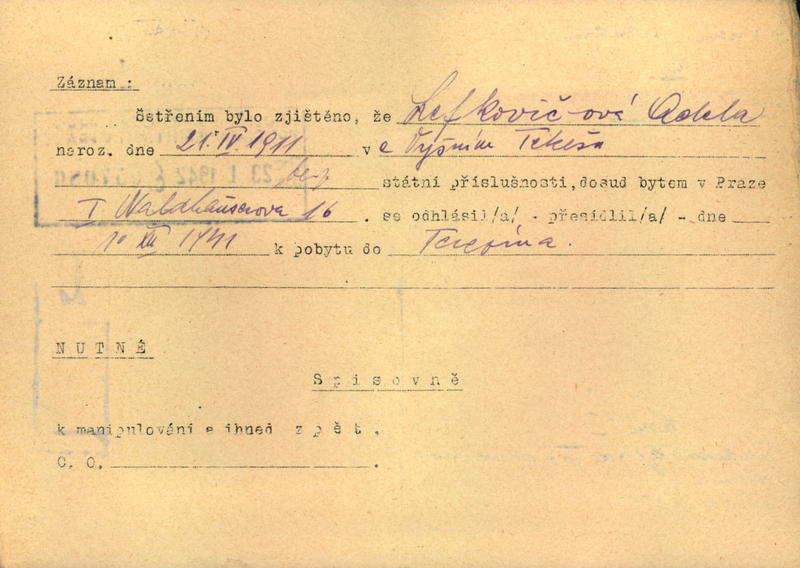 Záznam :
Šetřením bylo zjištěno, že Lefkovič-ová Adela
naroz. dne 21. IV. 1911 v e Vyšním
bez státní příslušnosti, dosud bytem v Praze
I Waldhauserova 16 . se odhlásil/a/ - přesídlil/a/ - dne
10 XII 1941 k pobytu do Terezína.
NUTNÉ
Spisovně
k manipulování a ihned zpět.
C. O. .